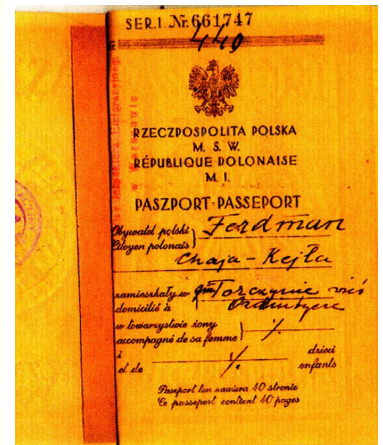 SER.I. Nr. 661747
440
RZECZPOSPOLITA POLSKA
M. S. W.
RÉPUBLIQUE POLONAISE
M. I.
PASZPORT-PASSEPORT
Obywatel polski } Ferdman
Citoyen polonais
Chaja-Kejła
zamieszkały w gm Torczynie wieś
domicilié à
w towarzystwie żony } ./.
accompagné de sa femme
i ./. dzieci
et de enfants
Paszport ten zawiera 40 stronic
Ce passeport contient 40 pages